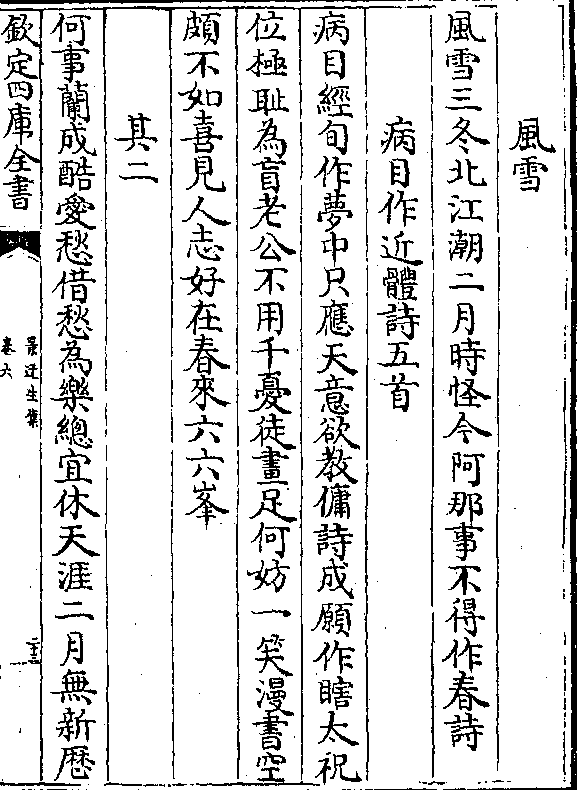 風雪
風雪三冬北江潮二月時怪今阿那事不得作春詩
病目作近體詩五首
病目經旬作夢中只應天意欲教傭詩成願作瞎太祝
位極耻為盲老公不用千憂徒畫足何妨一笑漫書空
頗不如喜見人志好在春來六六峯
其二
何事蘭成酷愛愁借愁為樂總宜休天涯二月無新歴
欽定四庫全書
景迂生集
卷六
二十三